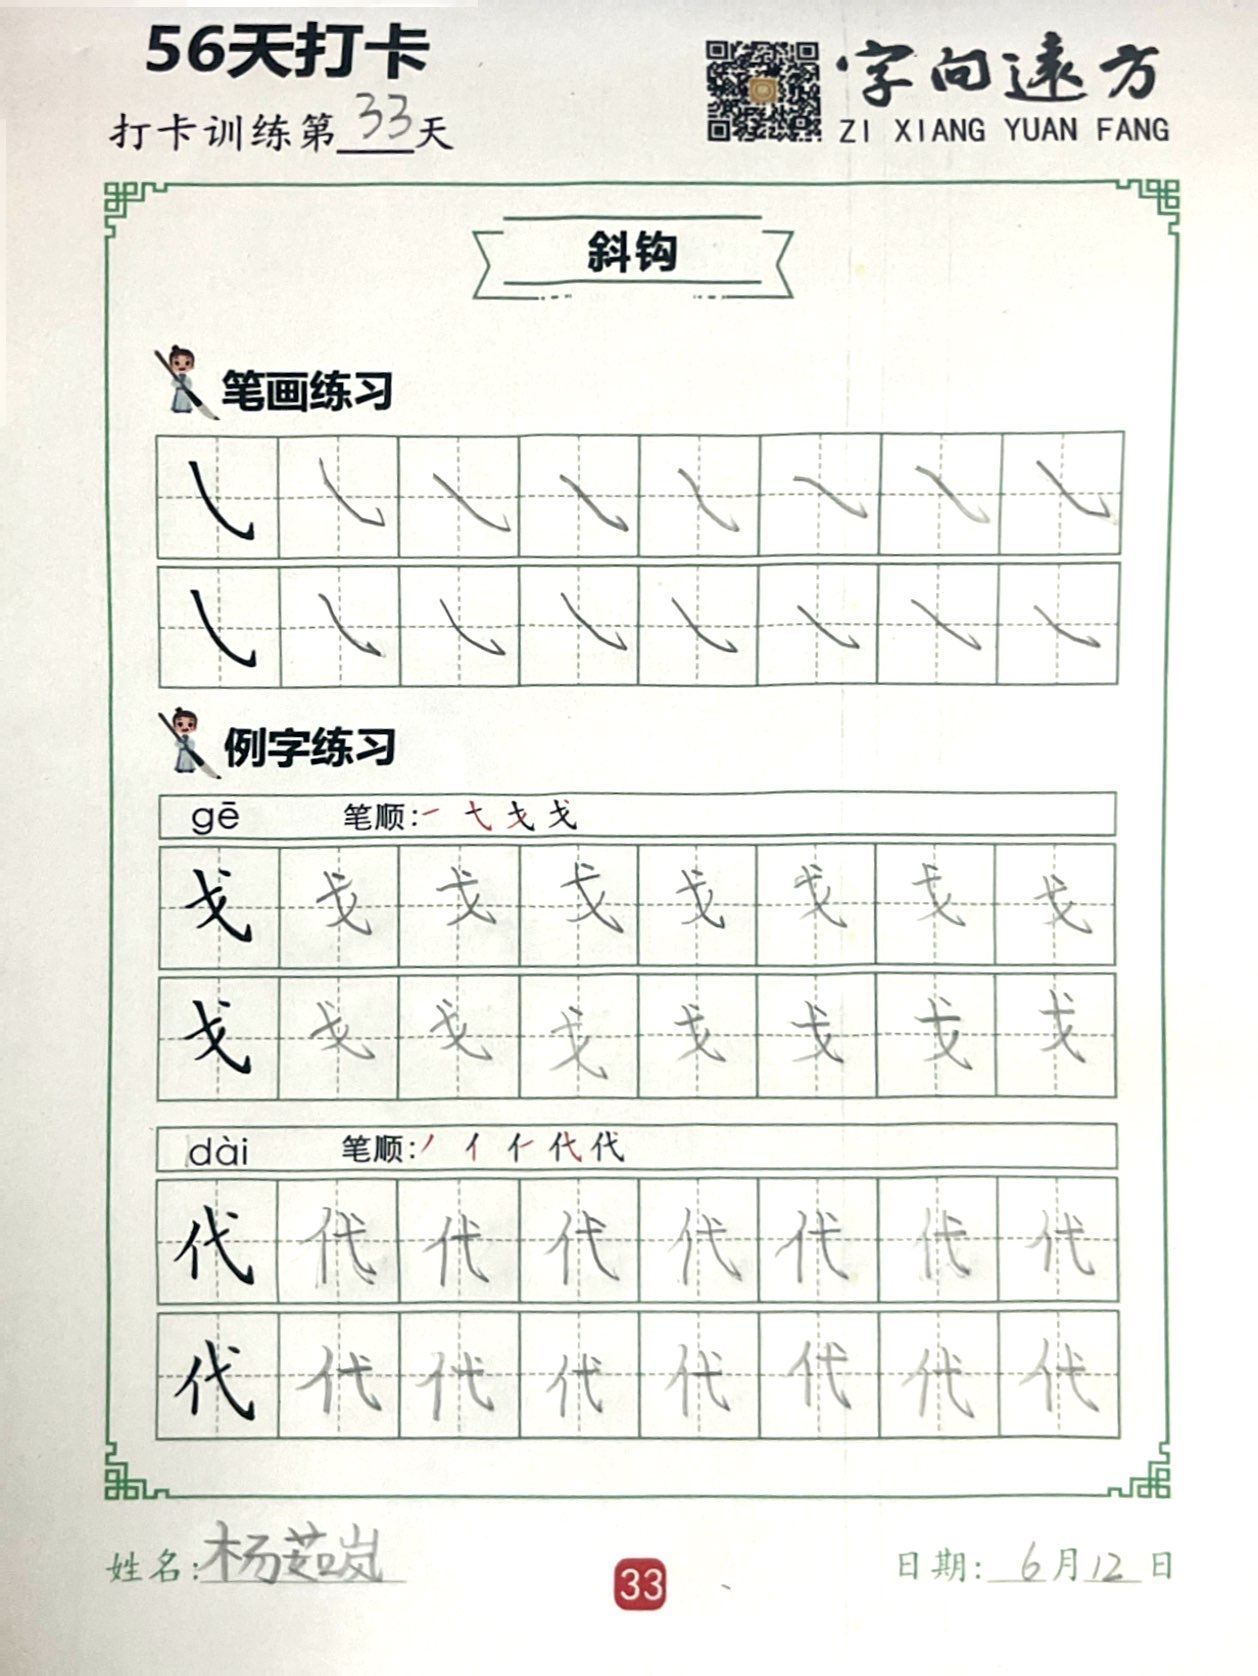 56天打卡
打卡训练第33天
字向遠方
ZI XIANG YUAN FANG
斜钩
笔画练习
㇂ ㇂ ㇂ ㇂ ㇂ ㇂ ㇂ ㇂
㇂ ㇂ ㇂ ㇂ ㇂ ㇂ ㇂ ㇂
例字练习
gē 笔顺: 一 弋 戈 戈
戈 戈 戈 戈 戈 戈 戈 戈
戈 戈 戈 戈 戈 戈 戈 戈
dài 笔顺: 丿 亻 仁 代 代
代 代 代 代 代 代 代 代
代 代 代 代 代 代 代 代
姓名: 杨茹岚
33
日期: 6月12日